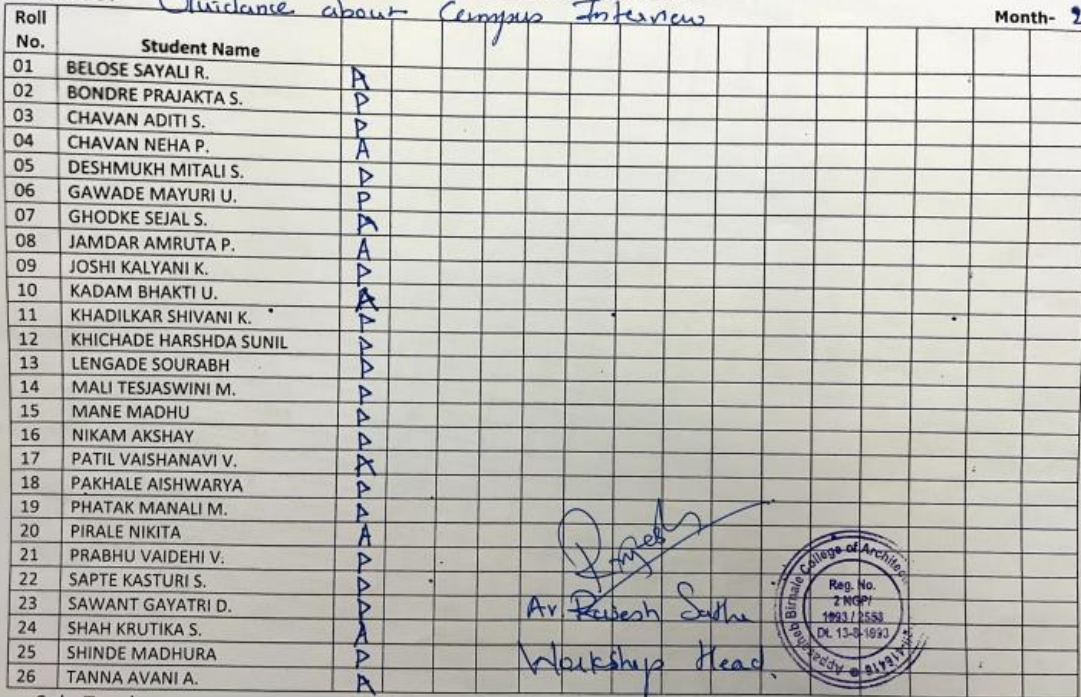 Guidance about Campus Interview
Month- 2
Roll No. Student Name
01 BELOSE SAYALI R. A
02 BONDRE PRAJAKTA S. P
03 CHAVAN ADITI S. P
04 CHAVAN NEHA P. A
05 DESHMUKH MITALI S. P
06 GAWADE MAYURI U. P
07 GHODKE SEJAL S. A
08 JAMDAR AMRUTA P. A
09 JOSHI KALYANI K. P
10 KADAM BHAKTI U. A
11 KHADILKAR SHIVANI K. P
12 KHICHADE HARSHDA SUNIL P
13 LENGADE SOURABH P
14 MALI TESJASWINI M. P
15 MANE MADHU P
16 NIKAM AKSHAY P
17 PATIL VAISHANAVI V. A
18 PAKHALE AISHWARYA P
19 PHATAK MANALI M. P
20 PIRALE NIKITA A
21 PRABHU VAIDEHI V. P
22 SAPTE KASTURI S. P
23 SAWANT GAYATRI D. P
24 SHAH KRUTIKA S. A
25 SHINDE MADHURA P
26 TANNA AVANI A. A
Ar. Sathe
Workshop Head
Appasaheb Birnale College of
Reg. No.
2 NGP/
1993 / 2553
Dt. 13-8-1993